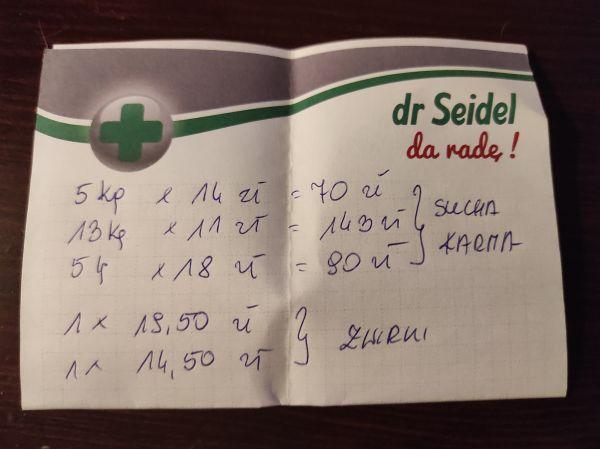 dr Seidel
da radę!
5 kg x 14 zł = 70 zł
13 kg x 11 zł = 143 zł
5 kg x 18 zł = 90 zł
SUCHA
KARMA
1 x 19,50 zł
1 x 14,50 zł
ŻWIRKI